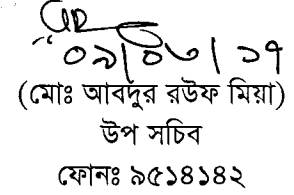 ০৯/০৮/১৭
(মোঃ আবদুর রউফ মিয়া)
উপ সচিব
ফোনঃ ৯৫১৪১৪২